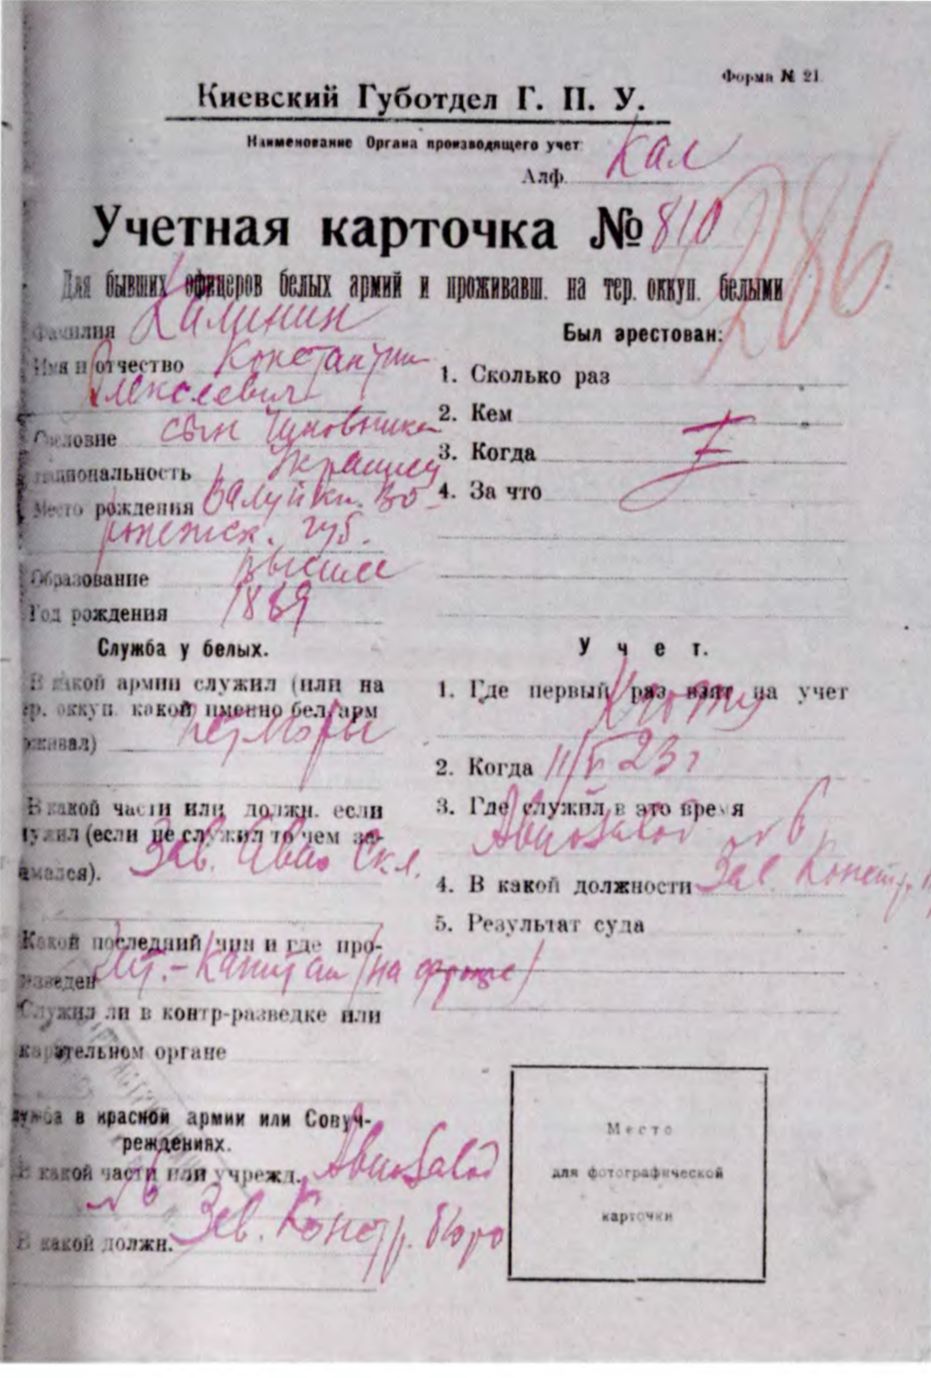 Форма № 21
Киевский Губотдел Г. П. У.
Наименование Органа производящего учет
Алф. Кал
Учетная карточка № 810
286
Для бывших офицеров белых армий и проживавш. на тер. оккуп. белыми
Фамилия Калинин
Имя и отчество Константин
Алексеевич
Сословие сын чиновника
национальность Украинец
Место рождения Валуйки. Во-
ронежск. губ.
Образование высшее
Год рождения 1889
Служба у белых.
В какой армии служил (или на
тер. оккуп. какой именно бел/арм
живал) Петлюры
В какой части или должн. если
служил (если не служил то чем за-
имался). Зав. Авио Скл.
Какой последний чин и где про-
изведен Шт.-Капитан (на фронте)
Служил ли в контр-разведке или
карательном органе
служба в красной армии или Совуч-
реждениях.
В какой части или учрежд. Авиозавод
№ 6
В какой должн. Зав. Констр. бюро
Был арестован:
1. Сколько раз
2. Кем
3. Когда
4. За что
Учет.
1. Где первый раз взят на учет
2. Когда 11/V 23 г
3. Где служил в это время
Авиозавод № 6
4. В какой должности Зав. Констр.
5. Результат суда
Место
для фотографической
карточки